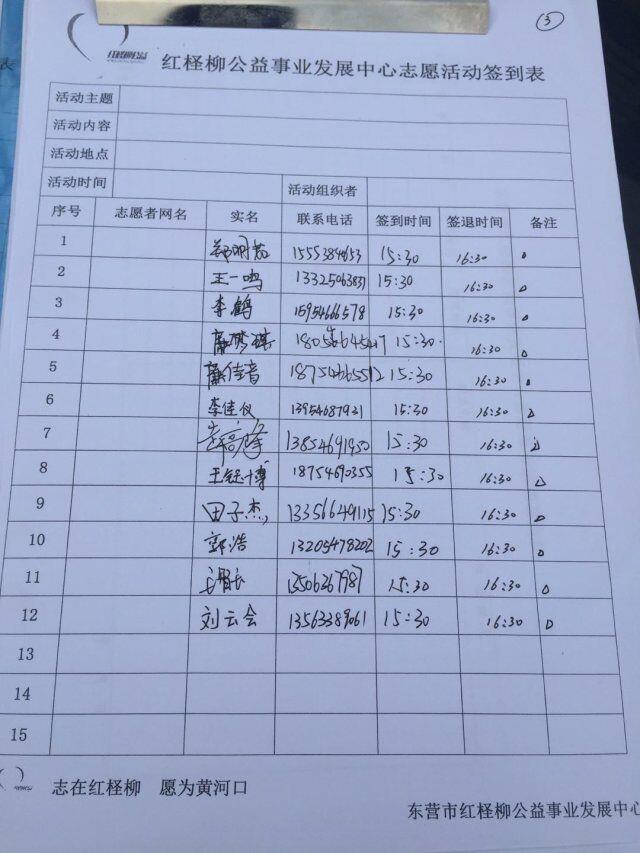 ③
红柽柳公益事业发展中心志愿活动签到表
活动主题
活动内容
活动地点
活动时间 活动组织者
序号 志愿者网名 实名 联系电话 签到时间 签退时间 备注
1 15:30 16:30
2 王一鸣 13325063831 15:30 16:30
3 李鹤 15954666578 15:30 16:30
4 15:30 16:30
5 15:30 16:30
6 李佳仪 13954687931 15:30 16:30
7 13854691950 15:30 16:30
8 王钰博 18754690355 15:30 16:30
9 田子杰 13356649115 15:30 16:30
10 郭浩 13205478202 15:30 16:30
11 15:30 16:30
12 刘云会 13563389061 15:30 16:30
13
14
15
志在红柽柳 愿为黄河口
东营市红柽柳公益事业发展中心